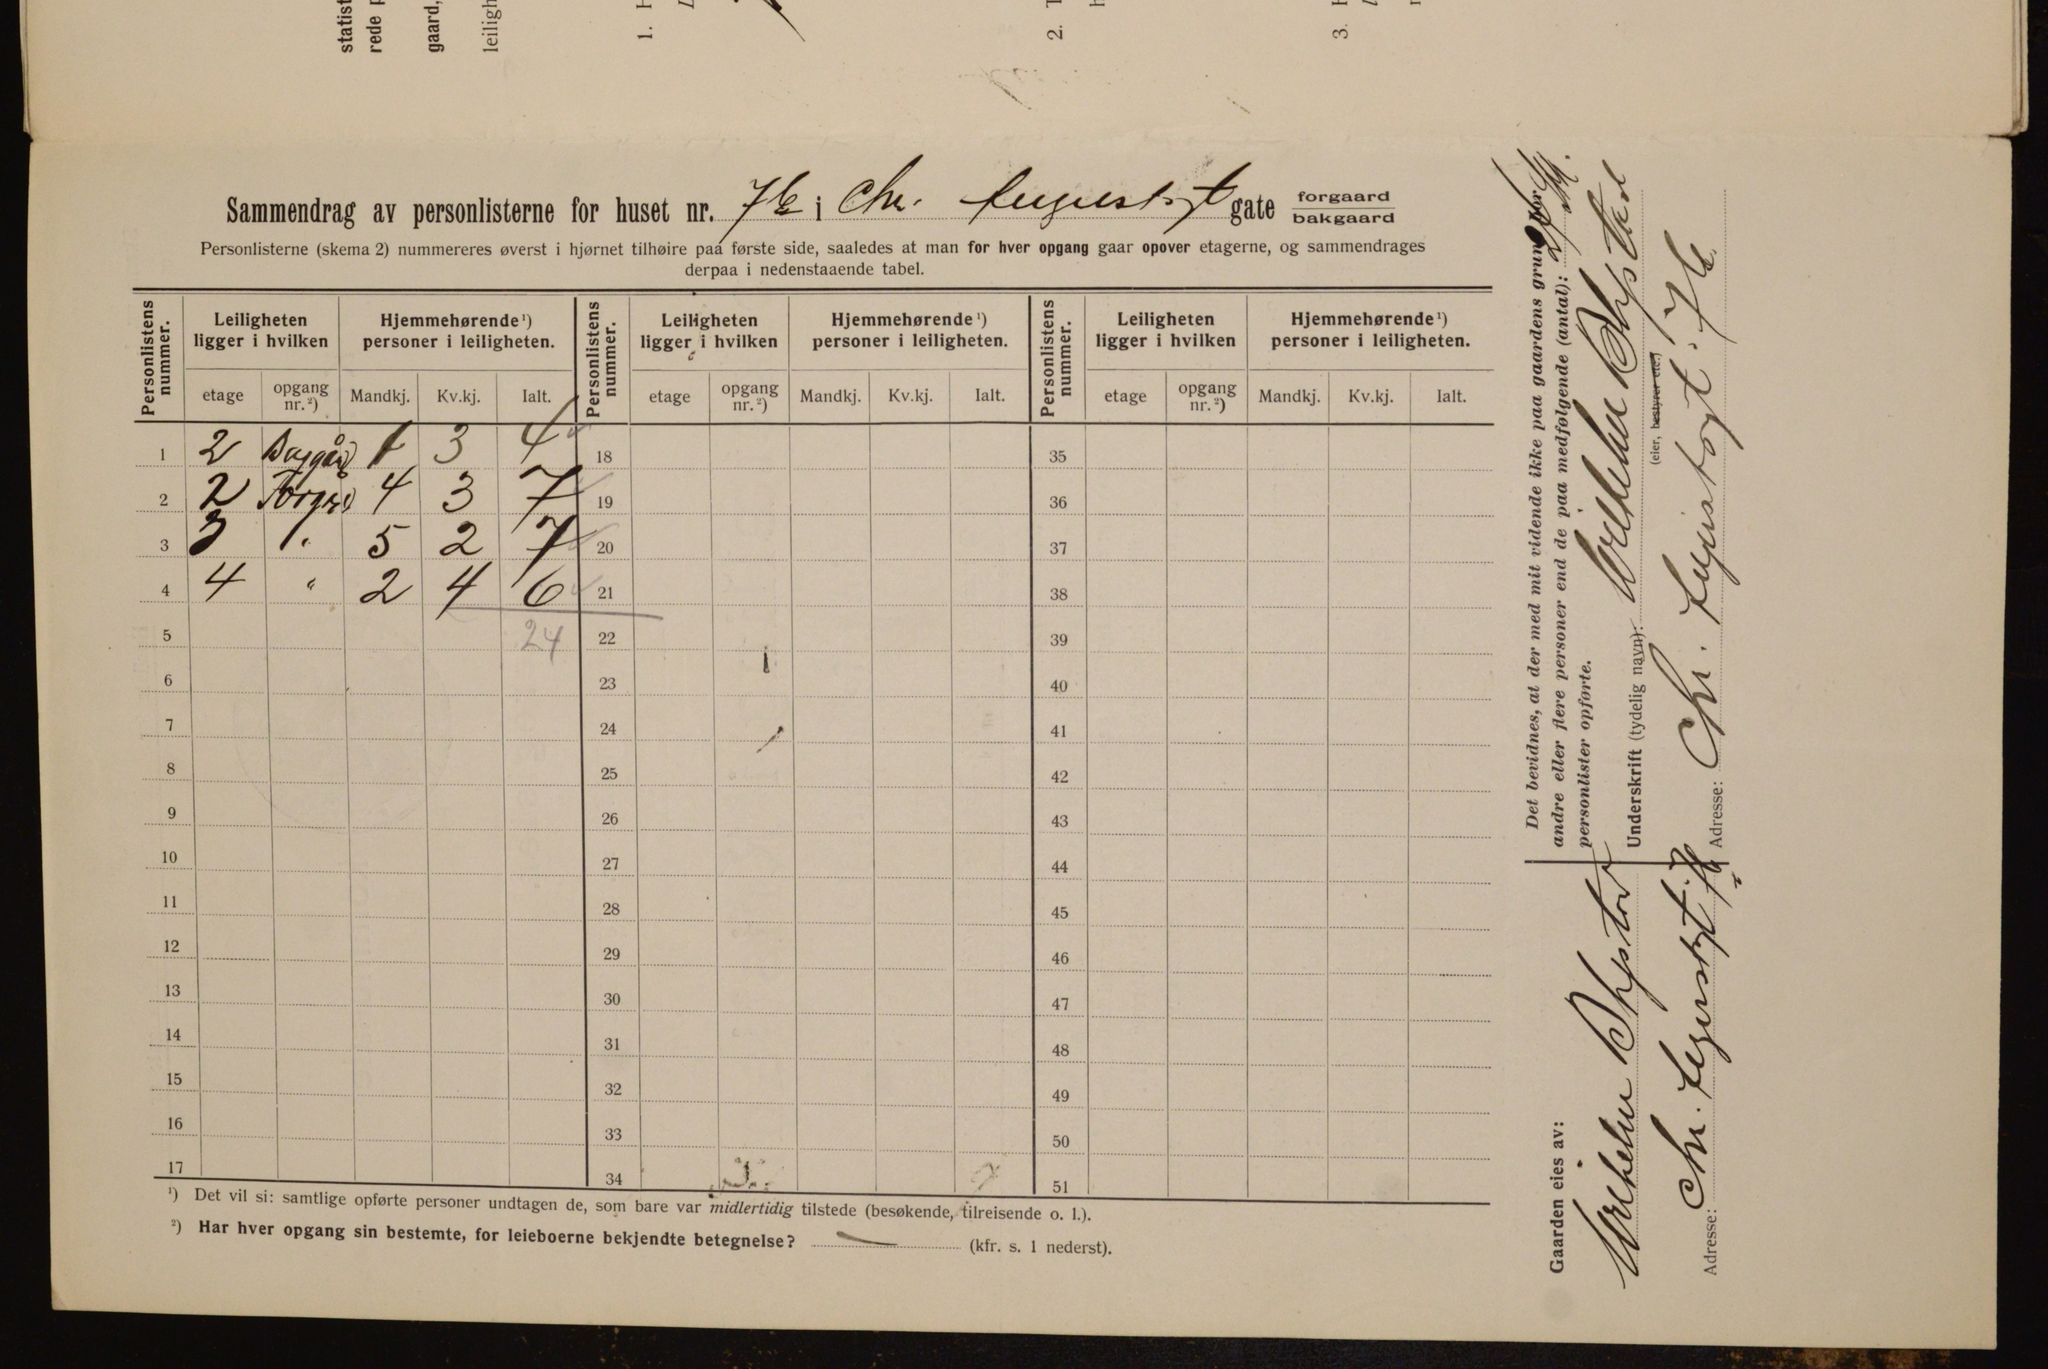 statist
rede p
gaard,
leiligh
1. H
2. T
3. H
Sammendrag av personlisterne for huset nr. 7b i Chr. Augustsgt gate forgaard bakgaard
Personlisterne (skema 2) nummereres øverst i hjørnet tilhøire paa første side, saaledes at man for hver opgang gaar opover etagerne, og sammendrages
derpaa i nedenstaaende tabel.
Personlistens nummer. Leiligheten ligger i hvilken Hjemmehørende ¹) personer i leiligheten. Personlistens nummer. Leiligheten ligger i hvilken Hjemmehørende ¹) personer i leiligheten. Personlistens nummer. Leiligheten ligger i hvilken Hjemmehørende ¹) personer i leiligheten.
etage opgang nr. ²) Mandkj. Kv.kj. Ialt. etage opgang nr. ²) Mandkj. Kv.kj. Ialt. etage opgang nr. ²) Mandkj. Kv.kj. Ialt.
1 2 Baggård 1 3 4 18 35
2 2 Forgrd 4 3 7 19 36
3 3 " 5 2 7 20 37
4 4 " 2 4 6 21 38
5 24 22 39
6 23 40
7 24 41
8 25 42
9 26 43
10 27 44
11 28 45
12 29 46
13 30 47
14 31 48
15 32 49
16 33 50
17 34 51
¹) Det vil si: samtlige opførte personer undtagen de, som bare var midlertidig tilstede (besøkende, tilreisende o. l.).
²) Har hver opgang sin bestemte, for leieboerne bekjendte betegnelse? — (kfr. s. 1 nederst).
Gaarden eies av:
Adresse: Chr. Augustsgt. 7b
Det bevidnes, at der med mit vidende ikke paa gaardens grund bor
andre eller flere personer end de paa medfølgende (antal):
personlister opførte.
Underskrift (tydelig navn):
(eier, bestyrer etc.)
Adresse: Chr. Augustsgt. 7b.